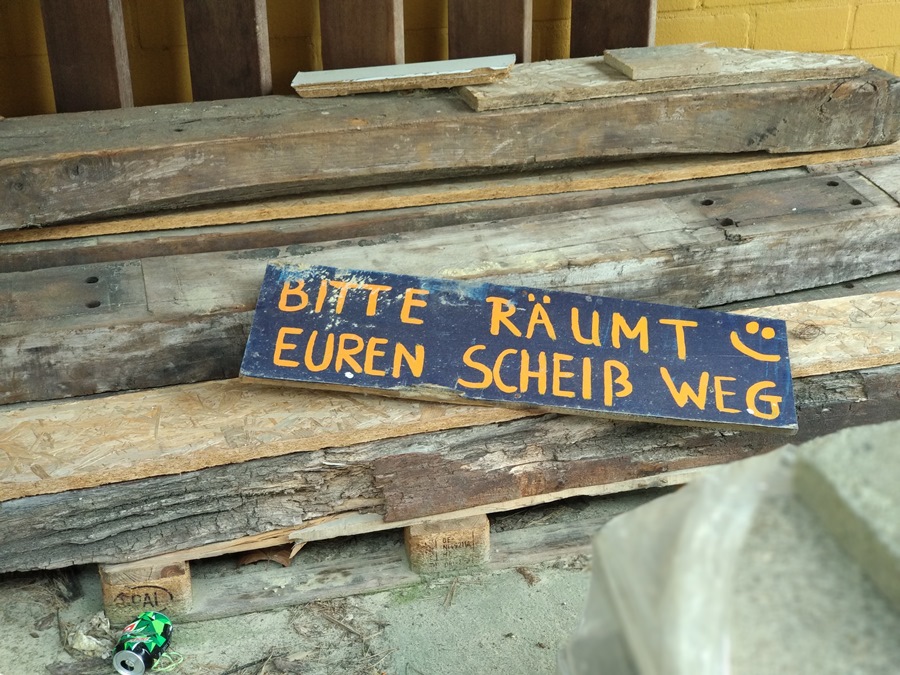 BITTE RÄUMT
EUREN SCHEIẞ WEG